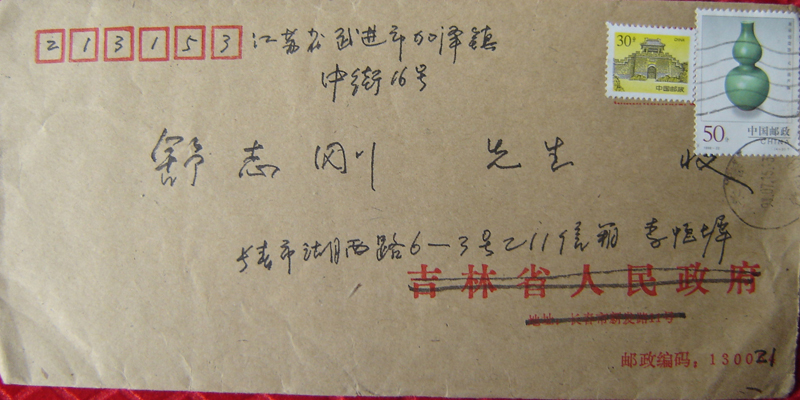 213153
江苏省武进市加泽镇
中街16号
30分
中国邮政
50分
中国邮政
CHINA
舒志刚 先生 收
长春市湖西路6-3号乙11信箱 李恒墀
吉林省人民政府
地址：长春市新发路11号
邮政编码：130021